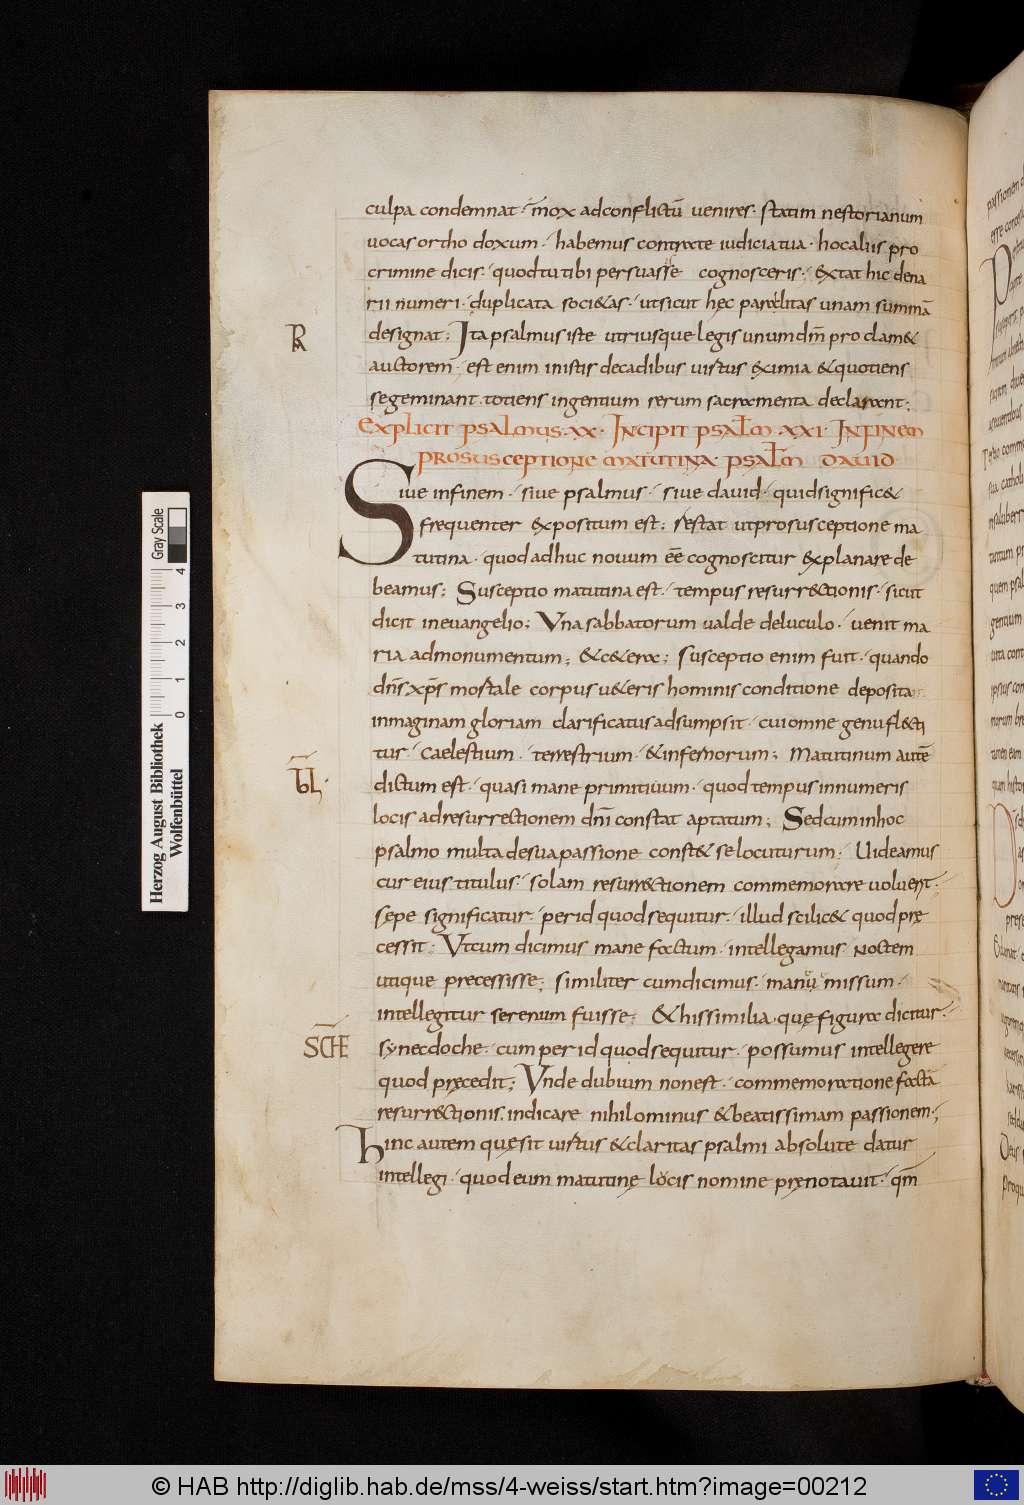 culpa condemnat · mox ad conflictū venires · statim nestorianum
uocas ortho doxum · habemus contracte iudicia tua · hoc aliis pro
crimine dicis · quod tu tibi persuasse cognosceris · extat hic dena
rii numeri · duplicata soci&as · ut sicut hęc parilitas unam summā
designat ; Ita psalmus iste utriusque legis unum dm̄ pro clam&
auctorem · est enim in istis decadibus uirtus eximia & quotiens
segeminant · totiens ingentium rerum sacramenta declarant ;
R
Explicit psalmus · xx · Incipit psalm̄ · xxi · In finem
pro susceptione matutina · psalm̄ dauid
Siue in finem · siue psalmus · siue dauid · quid signific&
frequenter expositum est ; restat ut pro susceptione ma
tutina · quod adhuc nouum eē cognoscitur explanare de
beamus ; Susceptio matutina est · tempus resurr&ctionis · sicut
dicit in euangelio ; Vna sabbatorum ualde deluculo · uenit ma
ria ad monumentum ; & c&era ; susceptio enim fuit · quando
dn̄s xp̄s mortale corpus u&eris hominis conditione deposita
in magnam gloriam clarificatus adsumpsit · cui omne genu fl&cti
tur · caelestium · terrestrium · & infernorum ; Matutinum autē
dictum est · quasi mane primitiuum · quod tempus innumeris
locis ad resurrectionem dn̄i constat aptatum ; Sed cum in hoc
psalmo multa de sua passione const& se locuturum · Uideamus
cur eius titulus · solam resurr&ctionem commemorare uoluerit ·
sępe significatur · per id quod sequitur · illud scilic& quod pre
cessit ; Vt cum dicimus mane factum · intellegamus noctem
utique precessisse ; similiter cum dicimus · manū missum ·
intellegitur serenum fuisse ; & his similia · quę figura dicitur ·
SCHE
synecdoche · cum per id quod sequitur · possumus intellegere
quod precedit ; Vnde dubium non est · commemoratione factā
resurr&ctionis · indicare nihilominus & beatissimam passionem ·;
hinc autem quę sit uirtus & claritas psalmi absolute datur
intellegi · quod eum matutinę locis nomine prenotauit · qm̄
Herzog August Bibliothek
Wolfenbüttel
0 1 2 3 4
Gray Scale
© HAB http://diglib.hab.de/mss/4-weiss/start.htm?image=00212